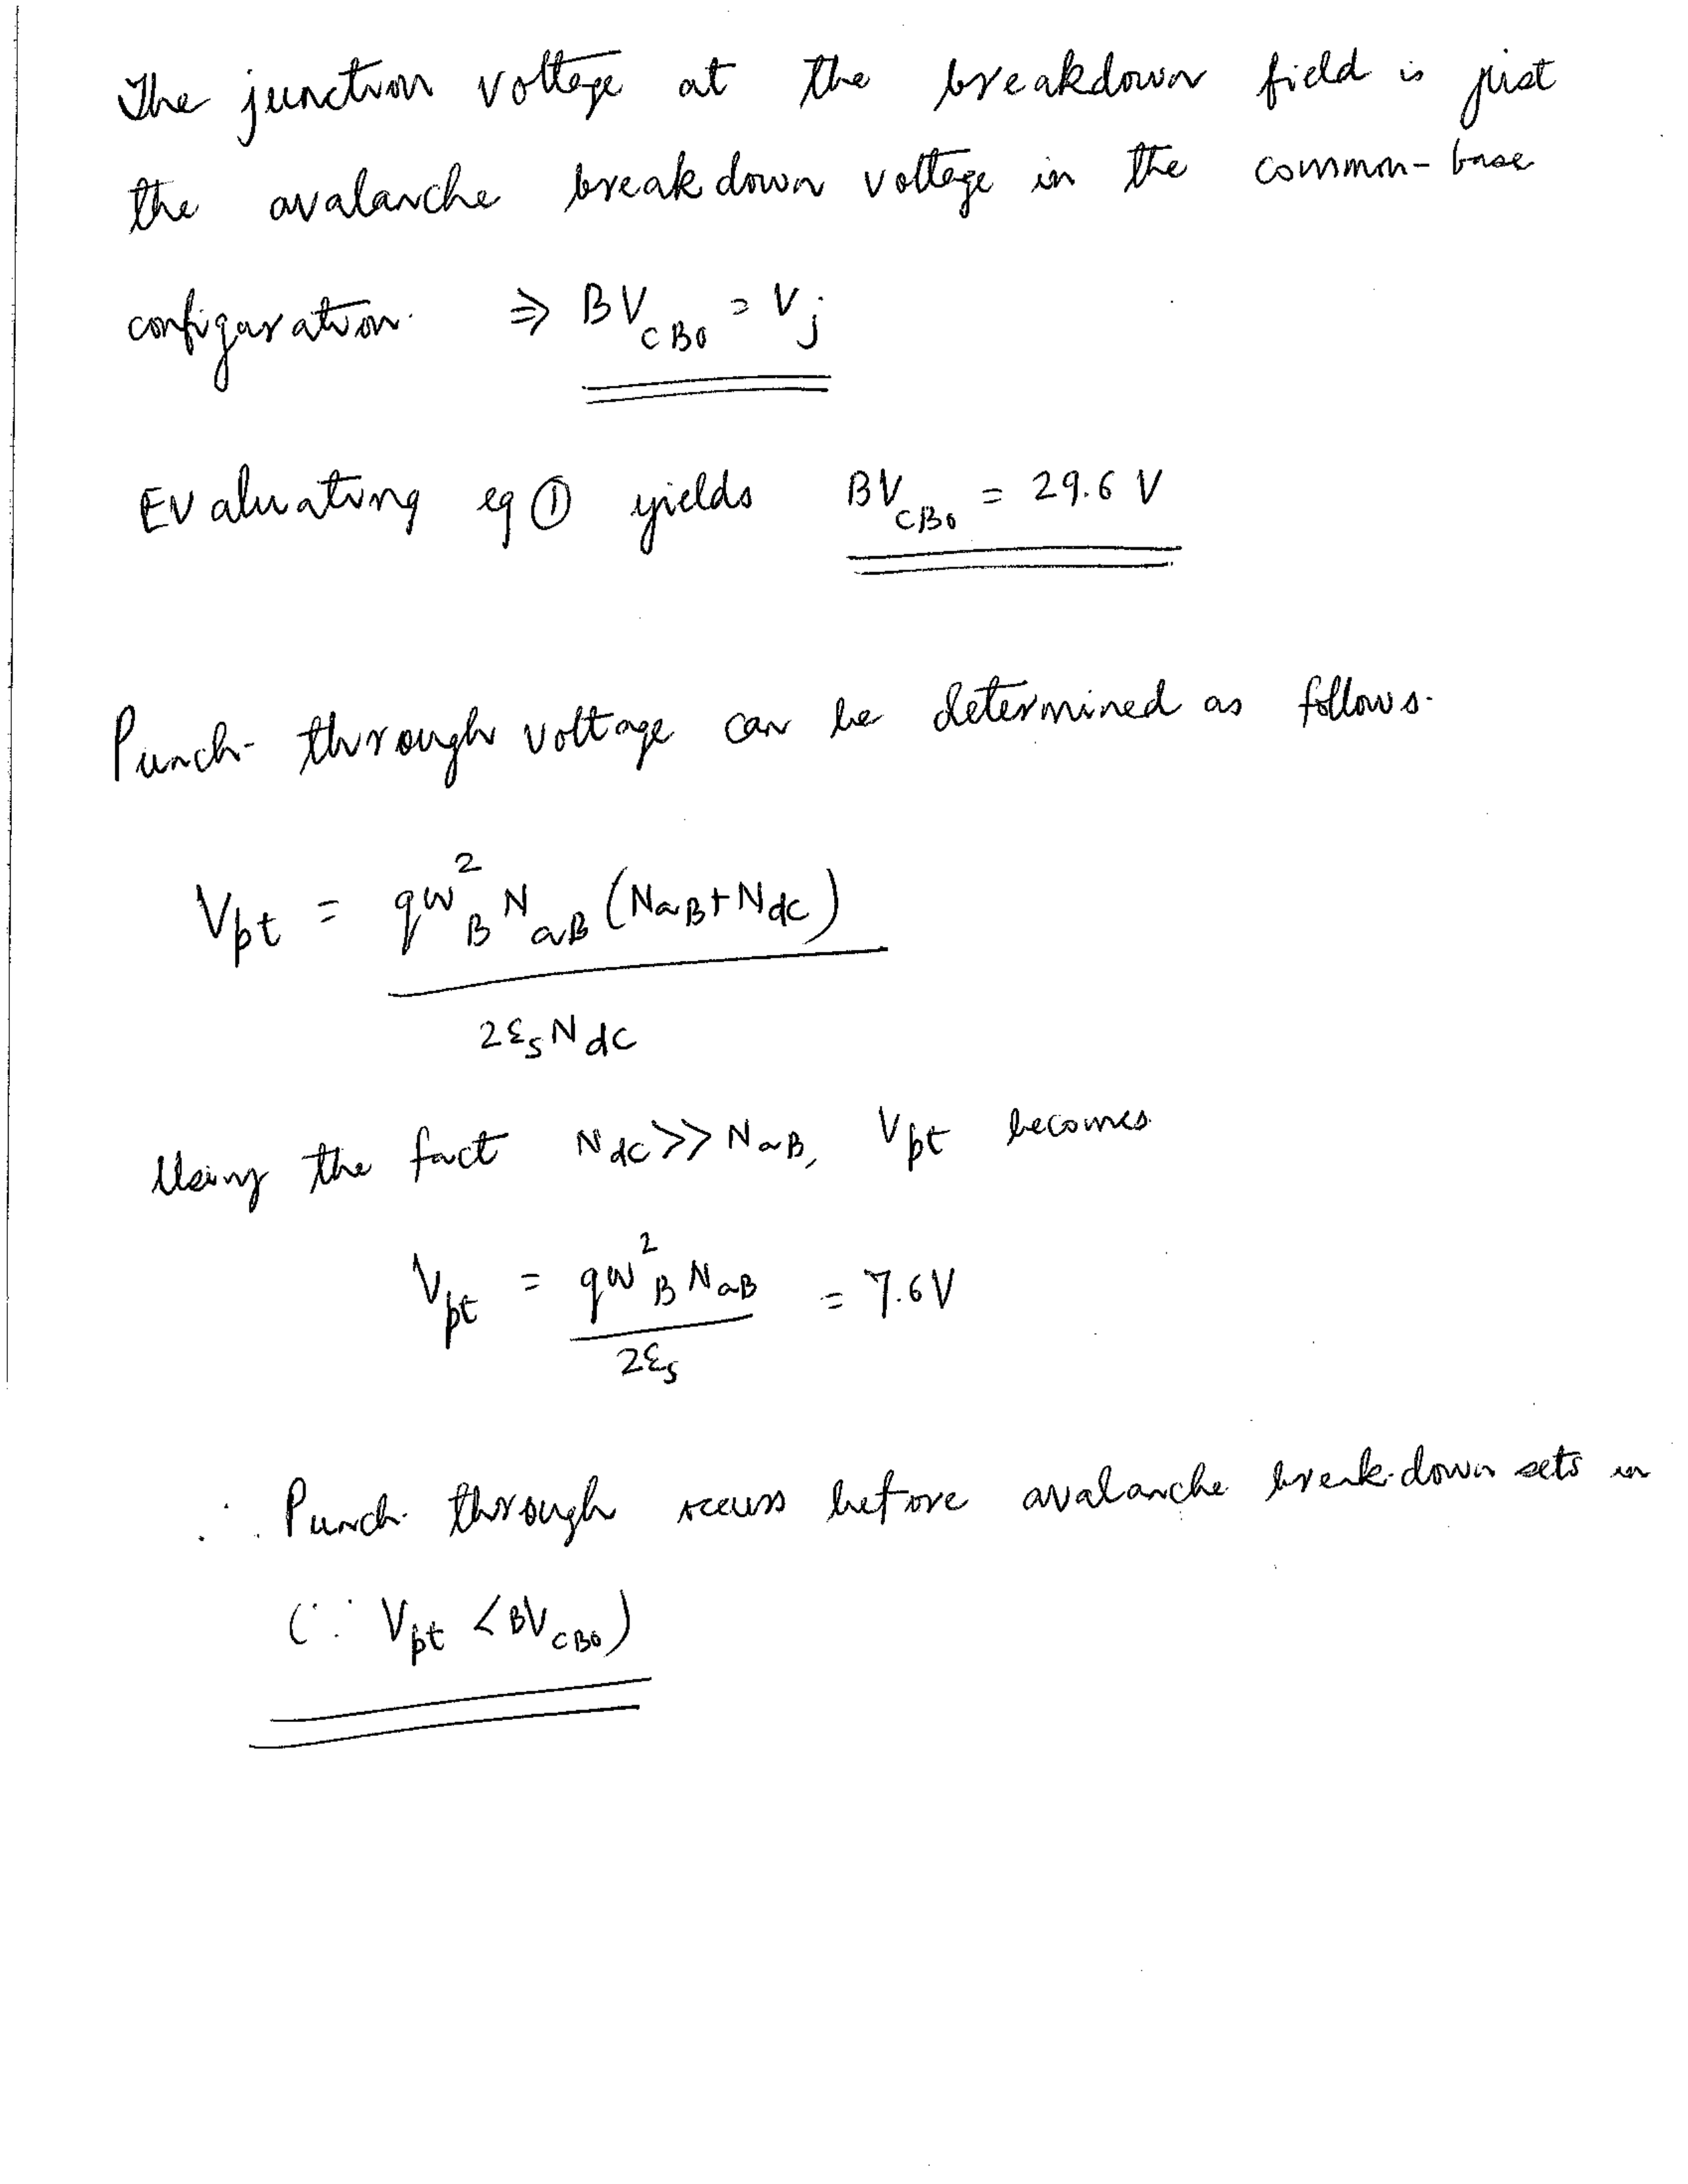 The junction voltage at the breakdown field is just
the avalanche breakdown voltage in the common-base
configuration. ⇒ BV_CBO = V_j
Evaluating eq ① yields BV_CBO = 29.6 V
Punch-through voltage can be determined as follows.
V_pt = qW_B^2 N_aB (N_aB + N_dC)
2ε_s N_dC
Using the fact N_dC >> N_aB, V_pt becomes
V_pt = qW_B^2 N_aB = 7.6V
2ε_s
∴ Punch through occurs before avalanche break-down sets in
(∵ V_pt < BV_CBO)